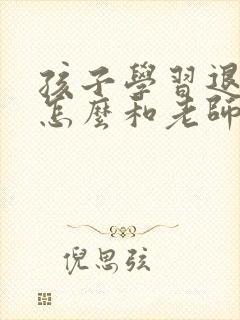 孩子學習退
怎麼和老師
倪思弦